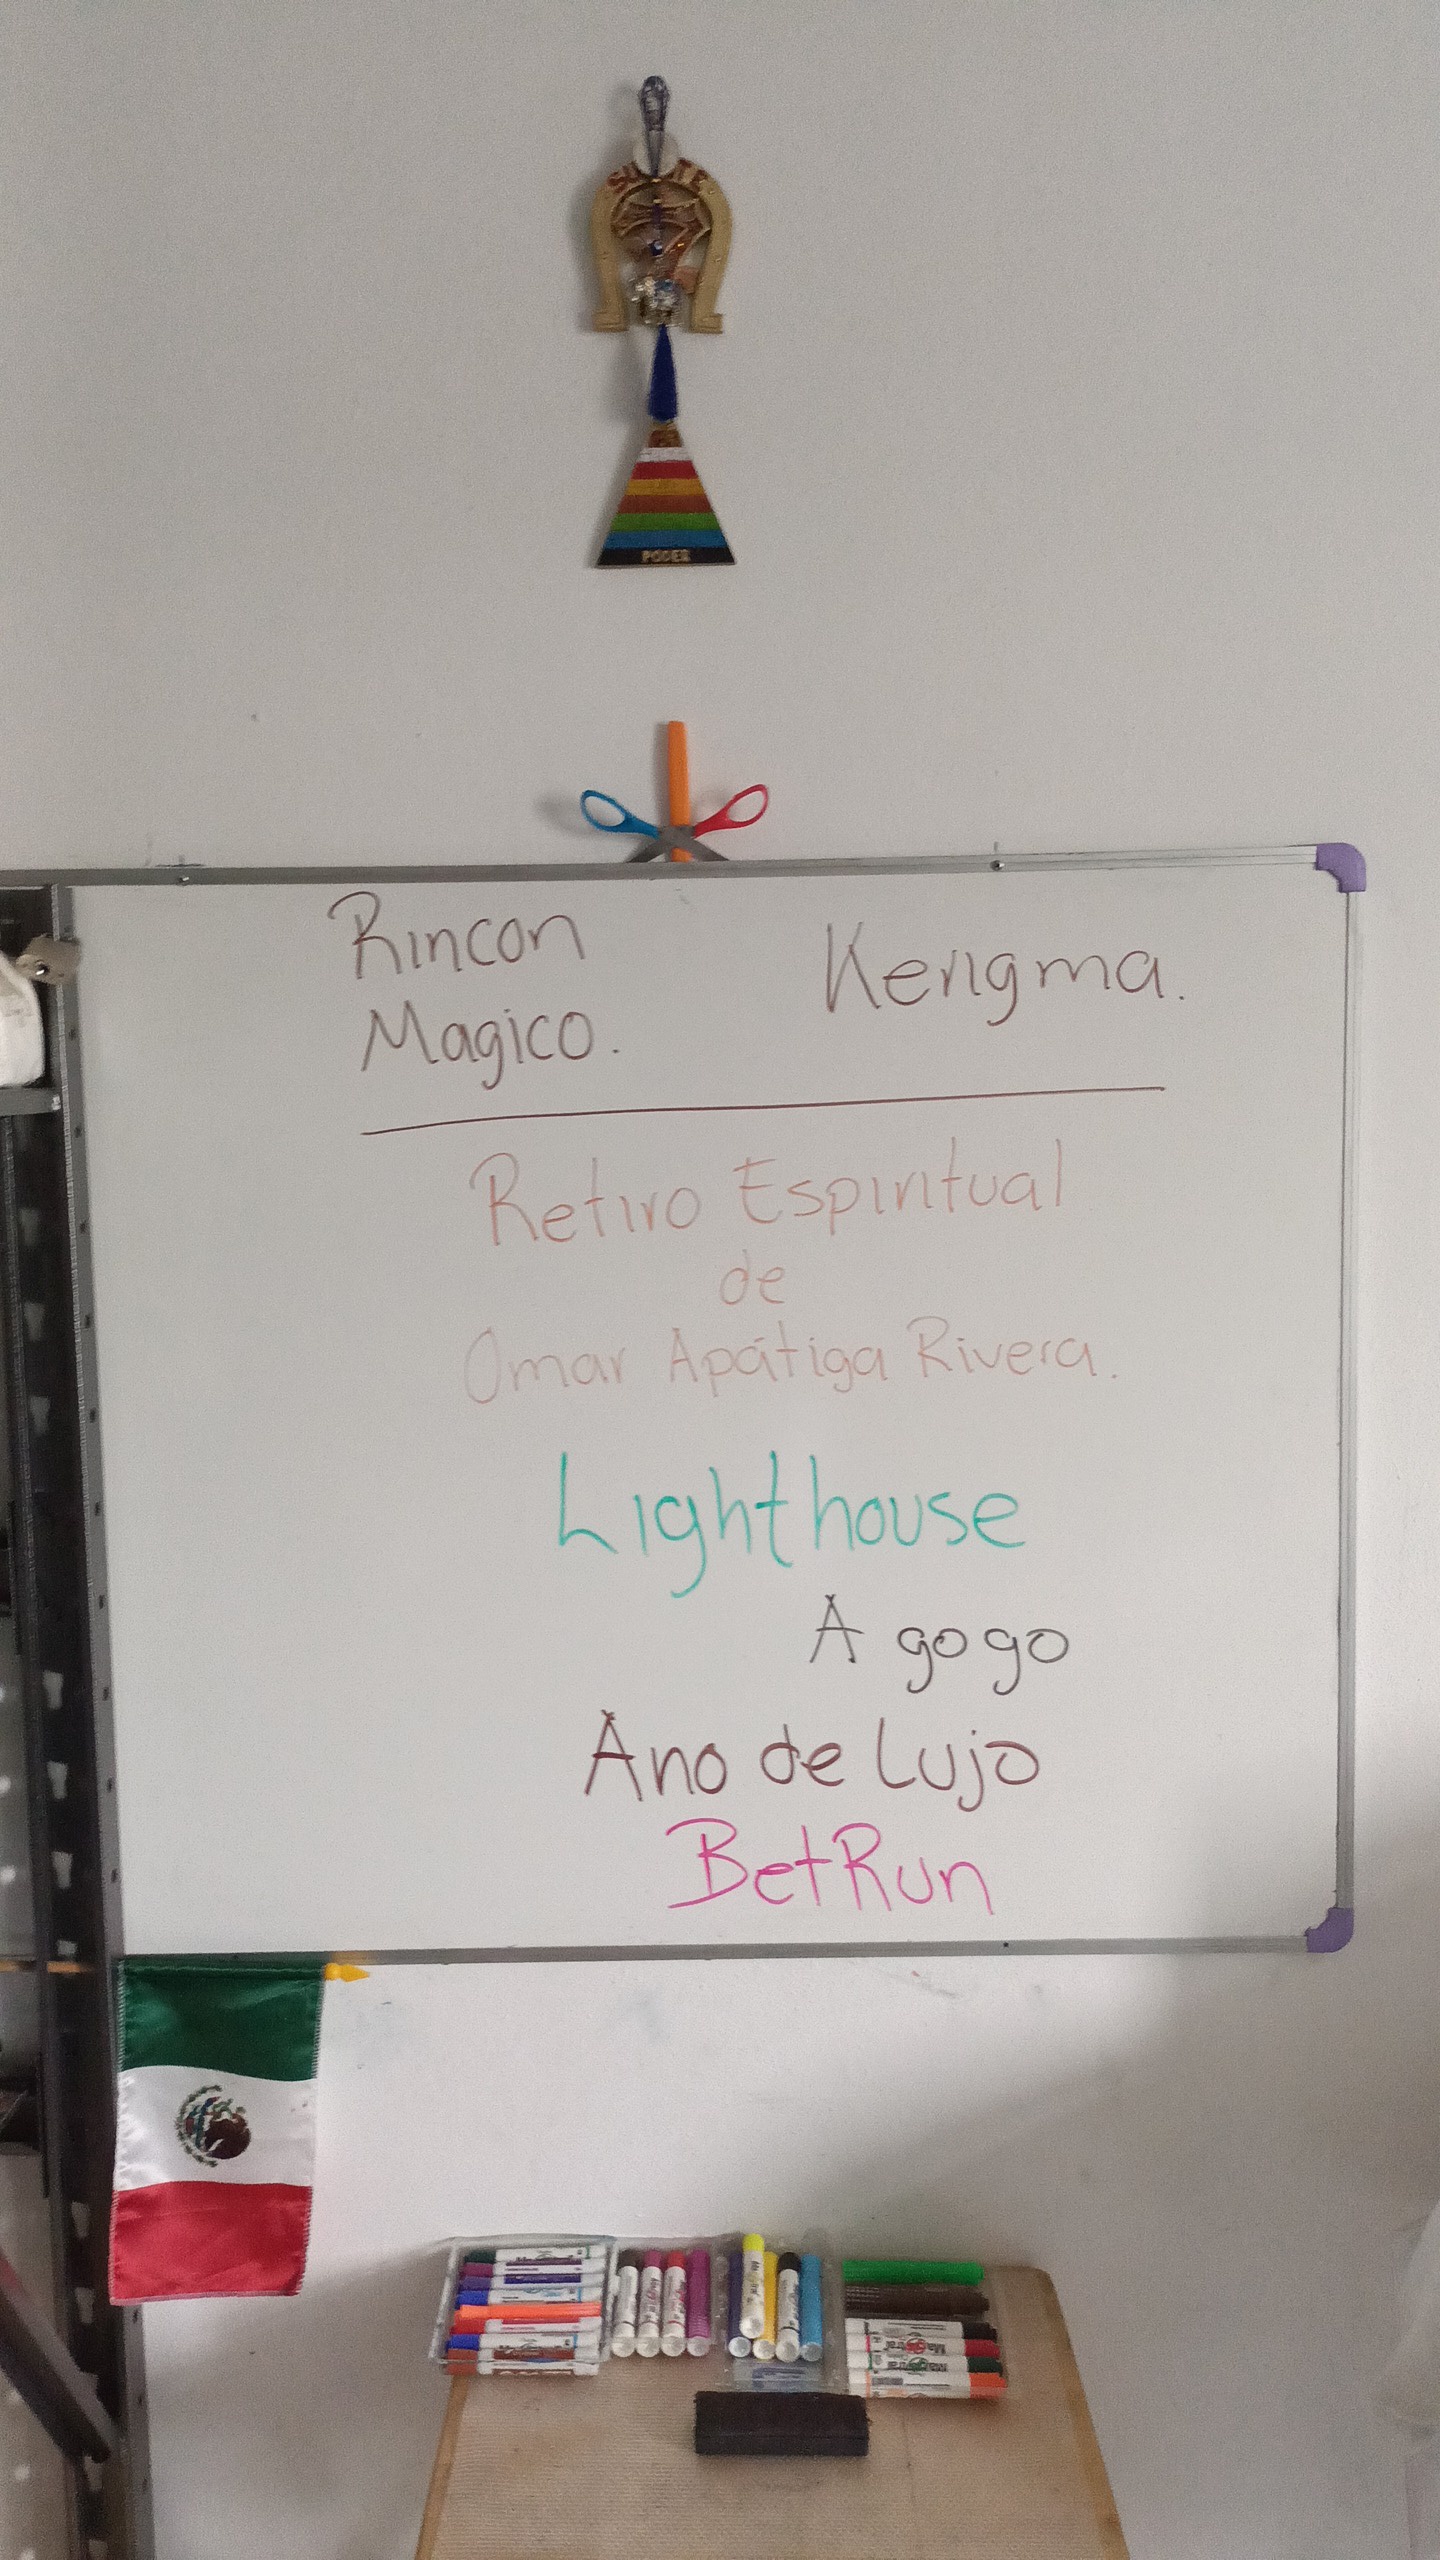 PODER
Rincon
Magico.
Kerigma.
Retiro Espiritual
de
Omar Apátiga Rivera.
Lighthouse
A gogo
Ano de Lujo
BetRun